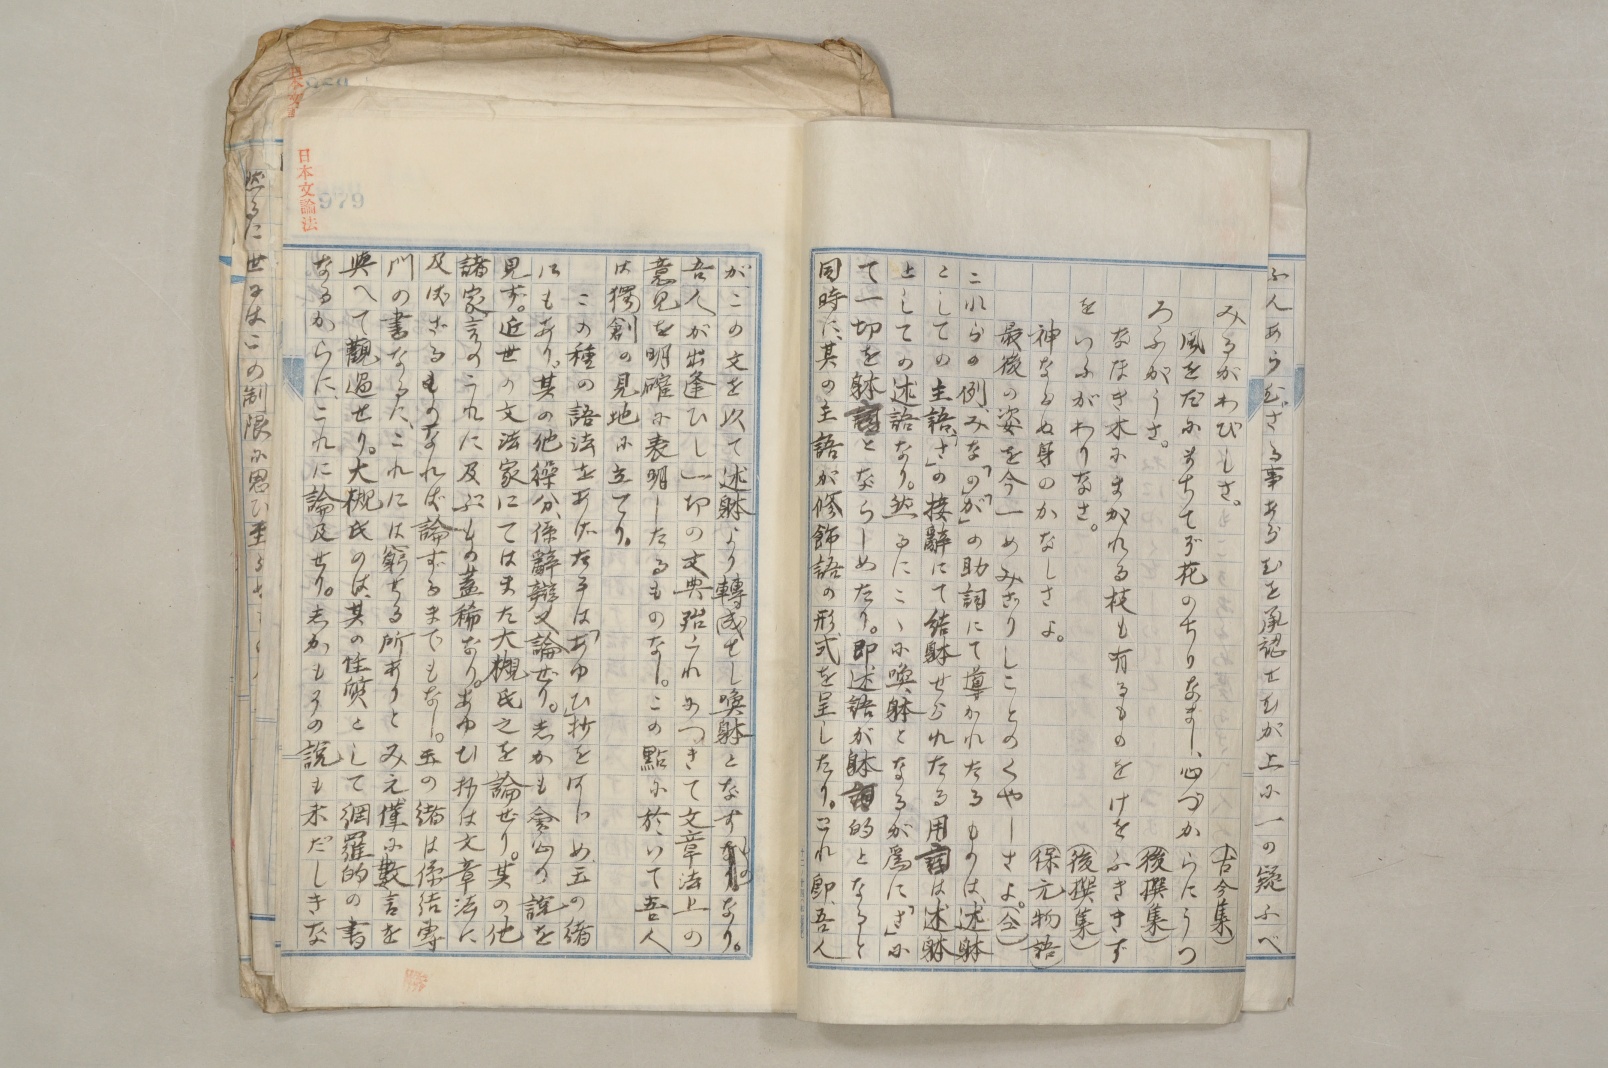 ふんあらむざる事あらむを承認せむが上に一の疑ふべ
みるがわびしさ。(古今集)
風をだにまちてぞ花のちりなまし、心づからにうつ
ろふがうさ。(後撰集)
なほき木にまがれる枝も有るものをけをふききず
をいふがわりなさ。(後撰集)
神ならぬ身のかなしさよ。(保元物語)
最後の姿を今一めみざりしことのくやしさよ。(仝)
これらの例、みな「の」「が」の助詞にて導かれたるものは、述躰
としての主語、「さ」の接辭にて結躰せられたる用言は述躰
としての述語なり。然るにこゝに喚躰となるが爲に「さ」に
て一切を躰言とならしめたり。即述語が躰言的となると
同時に、其の主語が修飾語の形式を呈したり。これ即、吾人
が、この文を以て述躰より轉成せし喚躰となすものなり。
吾人が出逢ひし一切の文典殆これにつきて文章法上の
意見を明確に表明したるものなし。この點に於いて吾人
は獨創の見地に立てり。
この種の語法をあげたるは「あゆひ抄」をはじめ、玉の緒
にもあり。其の他繰分、係辭辨又論ぜり。しかも会心の説を
見ず。近世の文法家にてはまた大槻氏之を論ぜり。其の他
諸家言のこれに及ぶもの蓋稀なり。あゆひ抄は文章法に
及ばざるものなれば論ずるまでもなし。玉の緒は係結專
門の書なるに、これには窮せる所ありとみえ、僅に數言を
與へて觀過せり。大槻氏のは、其の性質として網羅的の書
なるからに、これに論及せり。しかもその説も未だしきな
然るに世にはこの制限に思ひ至
日本文論法
979